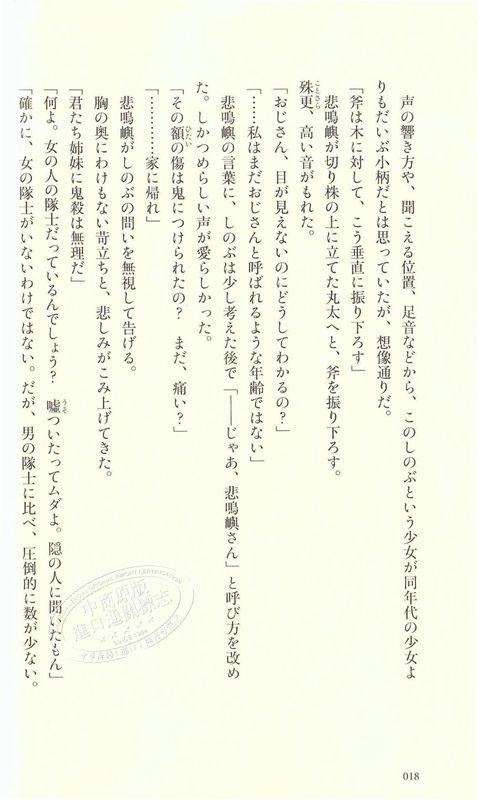 声の響き方や、聞こえる位置、足音などから、このしのぶという少女が同年代の少女よ
りもだいぶ小柄だとは思っていたが、想像通りだ。
「斧は木に対して、こう垂直に振り下ろす」
悲鳴嶼が切り株の上に立てた丸太へと、斧を振り下ろす。
殊更、高い音がもれた。
「おじさん、目が見えないのにどうしてわかるの?」
「……私はまだおじさんと呼ばれるような年齢ではない」
悲鳴嶼の言葉に、しのぶは少し考えた後で「――じゃあ、悲鳴嶼さん」と呼び方を改め
た。しかつめらしい声が愛らしかった。
「その額の傷は鬼につけられたの? まだ、痛い?」
「…………家に帰れ」
悲鳴嶼がしのぶの問いを無視して告げる。
胸の奥にわけもない苛立ちと、悲しみがこみ上げてきた。
「君たち姉妹に鬼殺は無理だ」
「何よ。女の人の隊士だっているんでしょう? 嘘ついたってムダよ。隠の人に聞いたもん」
「確かに、女の隊士がいないわけではない。だが、男の隊士に比べ、圧倒的に数が少ない。
ことさら
ひたい
うそ
中商原版
進口通關標志
018